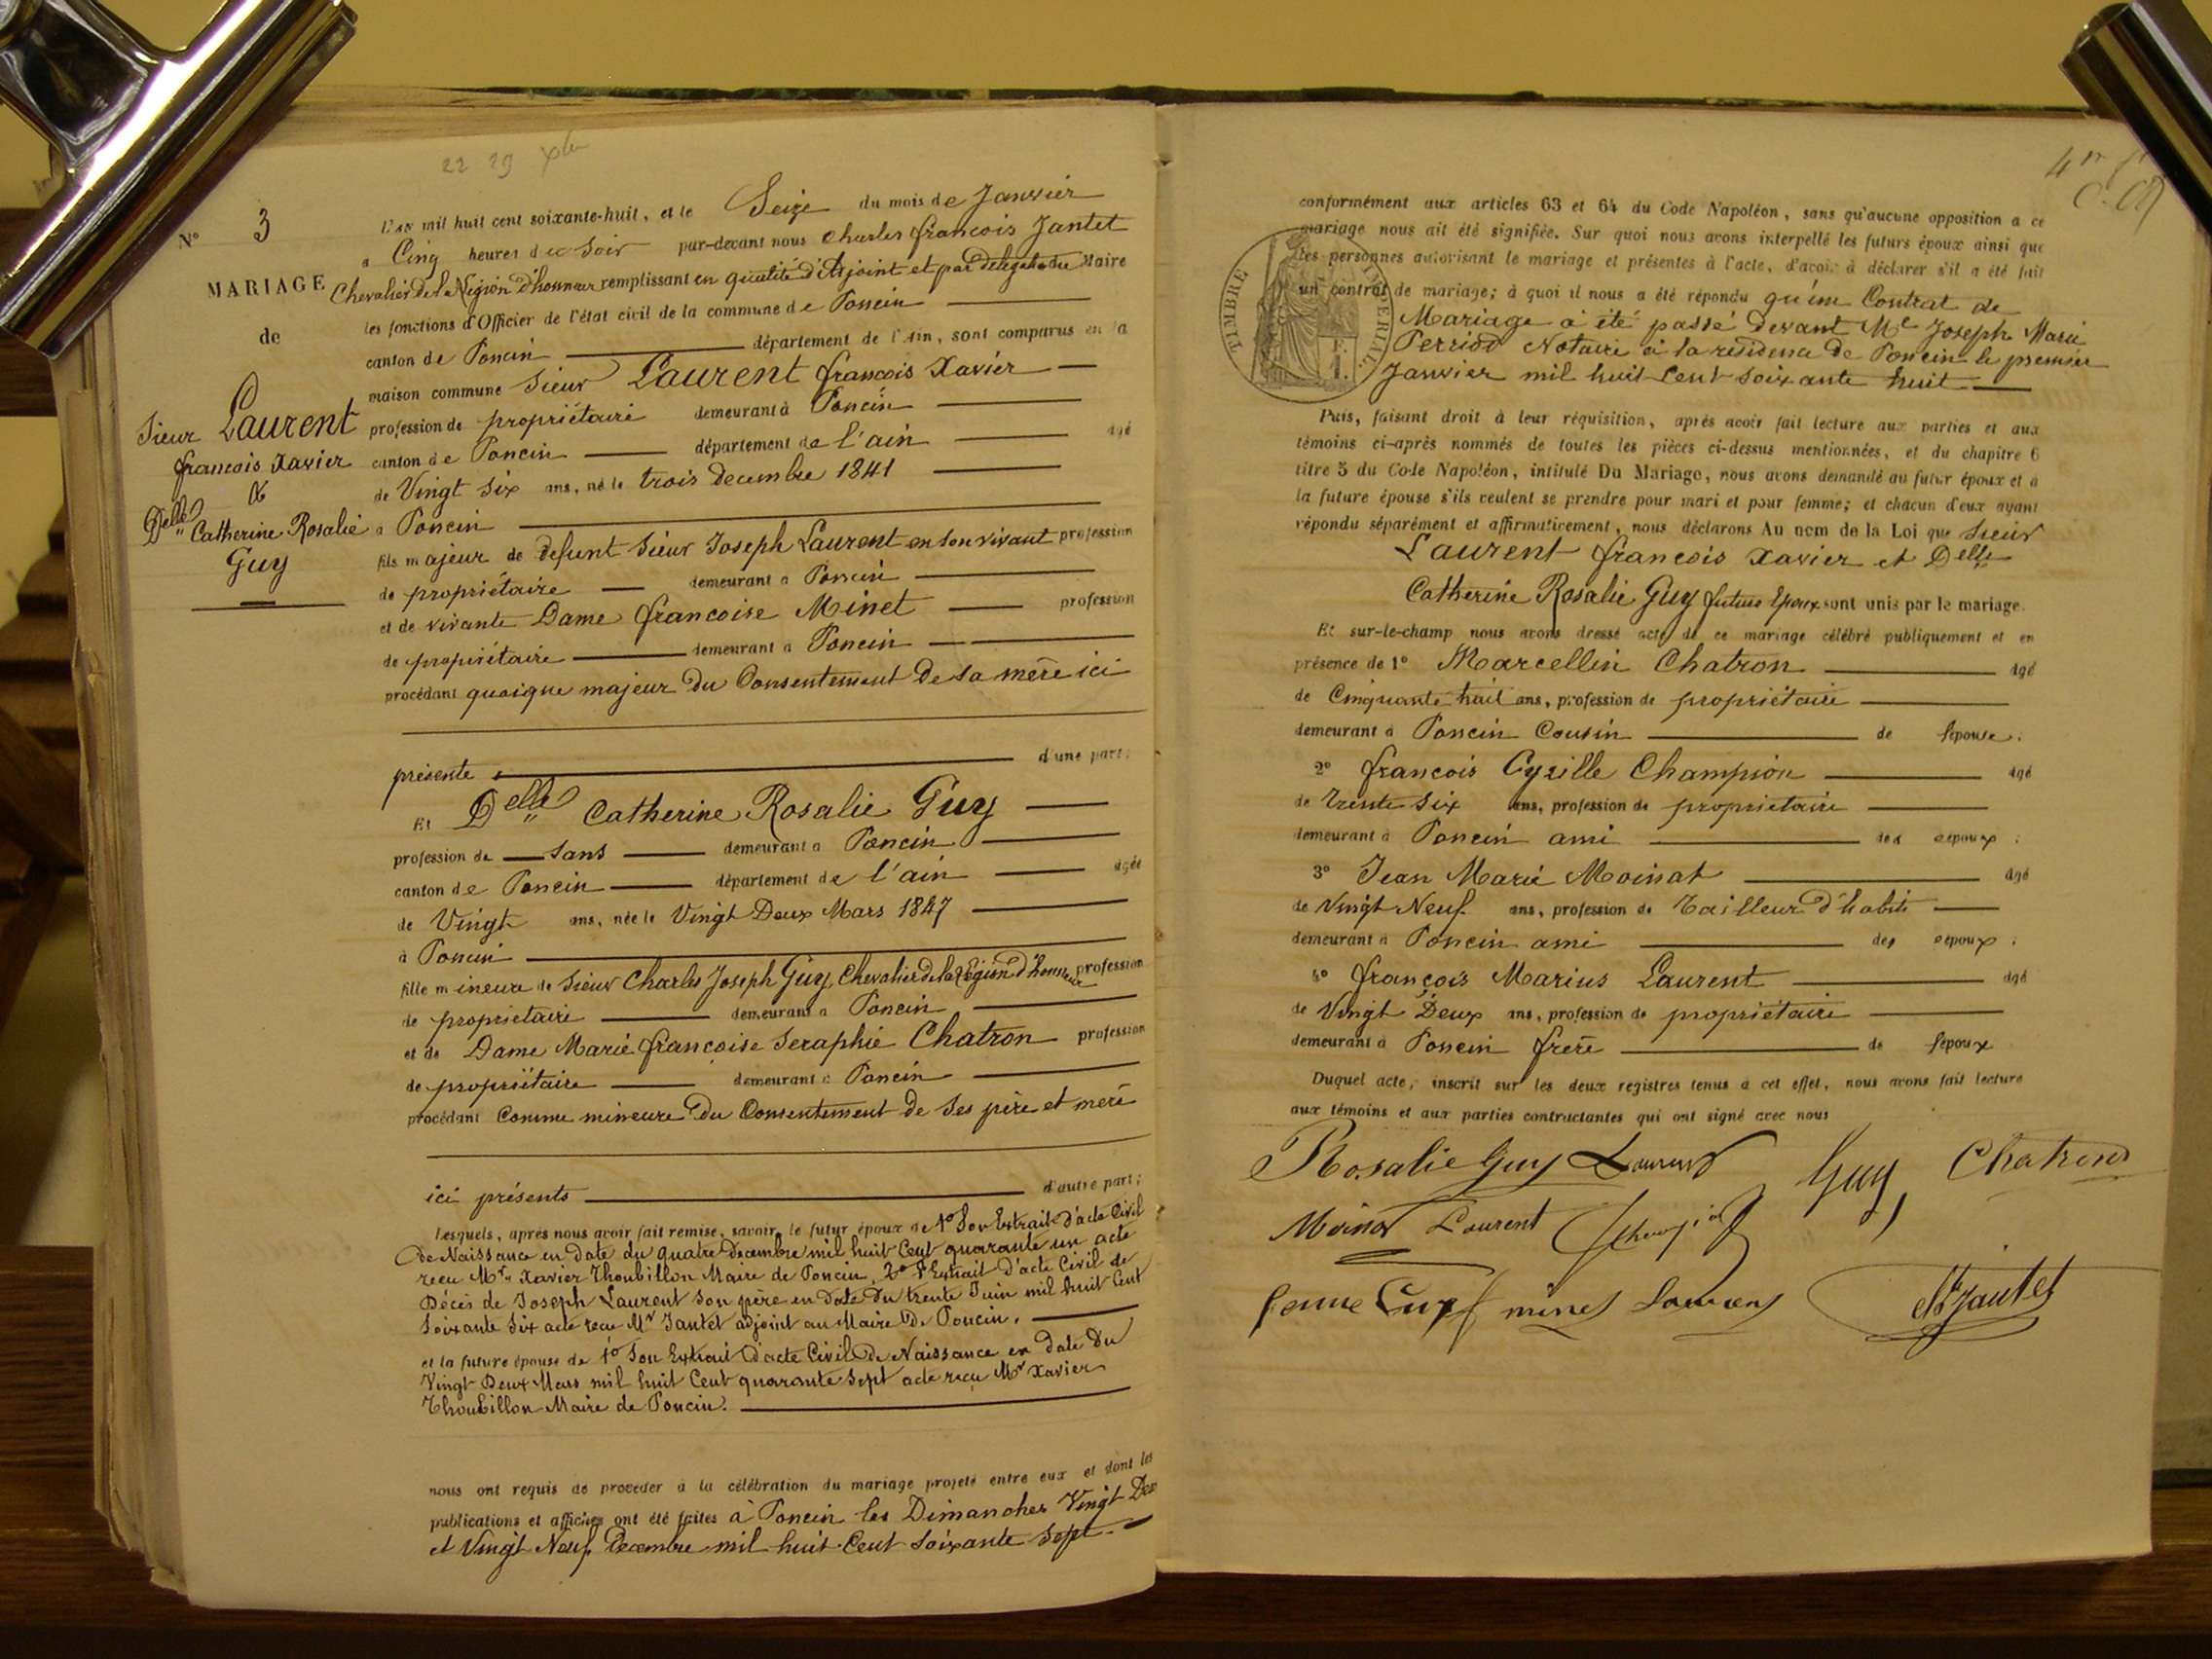 22 29 Xbre
N° 3
MARIAGE
de
Sieur Laurent
francois Xavier
&
Delle Catherine Rosalie
Guy
L'an mil huit cent soixante-huit, et le Seize du mois de Janvier
a Cinq heures du Soir par-devant nous Charles francois Jantet
Chevalier de la Légion d'honneur remplissant en qualité d'Adjoint et par délégation du Maire
les fonctions d'Officier de l'état civil de la commune de Poncin
canton de Poncin département de l'Ain, sont comparus en la
maison commune Sieur Laurent francois Xavier
profession de propriétaire demeurant à Poncin
canton de Poncin département de l'ain agé
de Vingt Six ans, né le trois Decembre 1841
a Poncin
fils majeur de defunt Sieur Joseph Laurent en son vivant profession
de propriétaire demeurant a Poncin
et de vivante Dame francoise Minet profession
de propriétaire demeurant a Poncin
procédant quoique majeur Du Consentement De sa mère ici
présente d'une part;
Et Delle Catherine Rosalie Guy
profession de Sans demeurant a Poncin
canton de Poncin département de l'ain agée
de Vingt ans, née le Vingt Deux Mars 1847
à Poncin
fille mineure de Sieur Charles Joseph Guy, Chevalier de la Légion d'honneur profession
de propriétaire demeurant a Poncin
et de Dame Marie françoise Seraphie Chatron profession
de propriétaire demeurant a Poncin
procédant Comme mineure Du Consentement de Ses père et mère
ici présents d'autre part;
Lesquels, après nous avoir fait remise, savoir, le futur époux de 1° Son Extrait d'acte Civil
De Naissance en Date du quatre Decembre mil huit Cent quarante un acte
recu Mr Xavier Thoubillon Maire de Poncin, 2° l'Extrait d'acte Civil de
Décès de Joseph Laurent Son père en Date Du trente Juin mil huit Cent
Soixante Six acte recu Mr Jantet adjoint au Maire De Poncin.
et la future épouse de 1° Son Extrait D'acte Civil De Naissance en Date Du
Vingt Deux Mars mil huit Cent quarante Sept acte reçu Mr Xavier
Thoubillon Maire de Poncin.
nous ont requis de proceder à la célébration du mariage projeté entre eux et dont les
publications et affiches ont été faites à Poncin les Dimanches Vingt Deux
et Vingt Neuf Decembre mil huit Cent Soixante Sept.
conformément aux articles 63 et 64 du Code Napoléon, sans qu'aucune opposition a ce
mariage nous ait été signifiée. Sur quoi nous avons interpellé les futurs époux ainsi que
les personnes autorisant le mariage et présentes à l'acte, d'avoir à déclarer s'il a été fait
un contrat de mariage; à quoi il nous a été répondu qu'un Contrat de
TIMBRE IMPERIAL
Mariage a été passé devant Me Joseph Marie
Perriod Notaire à la residence de Poncin le premier
Janvier mil huit Cent Soixante huit
Puis, faisant droit à leur réquisition, après avoir fait lecture aux parties et aux
témoins ci-après nommés de toutes les pièces ci-dessus mentionnées, et du chapitre 6
titre 5 du Code Napoléon, intitulé Du Mariage, nous avons demandé au futur époux et à
la future épouse s'ils veulent se prendre pour mari et pour femme; et chacun d'eux ayant
répondu séparément et affirmativement, nous déclarons Au nom de la Loi que Sieur
Laurent francois Xavier et Delle
Catherine Rosalie Guy futurs Epoux sont unis par le mariage.
Et sur-le-champ nous avons dressé acte de ce mariage célébré publiquement et en
présence de 1° Marcellin Chatron agé
de Cinquante huit ans, profession de propriétaire
demeurant à Poncin Cousin de l'épouse.
2° francois Cyrille Champion agé
de trente Six ans, profession de propriétaire
demeurant à Poncin ami des époux.
3° Jean Marie Moinat agé
de Vingt Neuf ans, profession de Tailleur d'habits
demeurant à Poncin ami des époux.
4° françois Marius Laurent agé
de Vingt Deux ans, profession de propriétaire
demeurant à Poncin frère de l'époux
Duquel acte, inscrit sur les deux registres tenus à cet effet, nous avons fait lecture
aux témoins et aux parties contractantes qui ont signé avec nous
Rosalie Guy Laurent Guy Chatron
Moinat Laurent
femme Guy minet Laurent Jantet